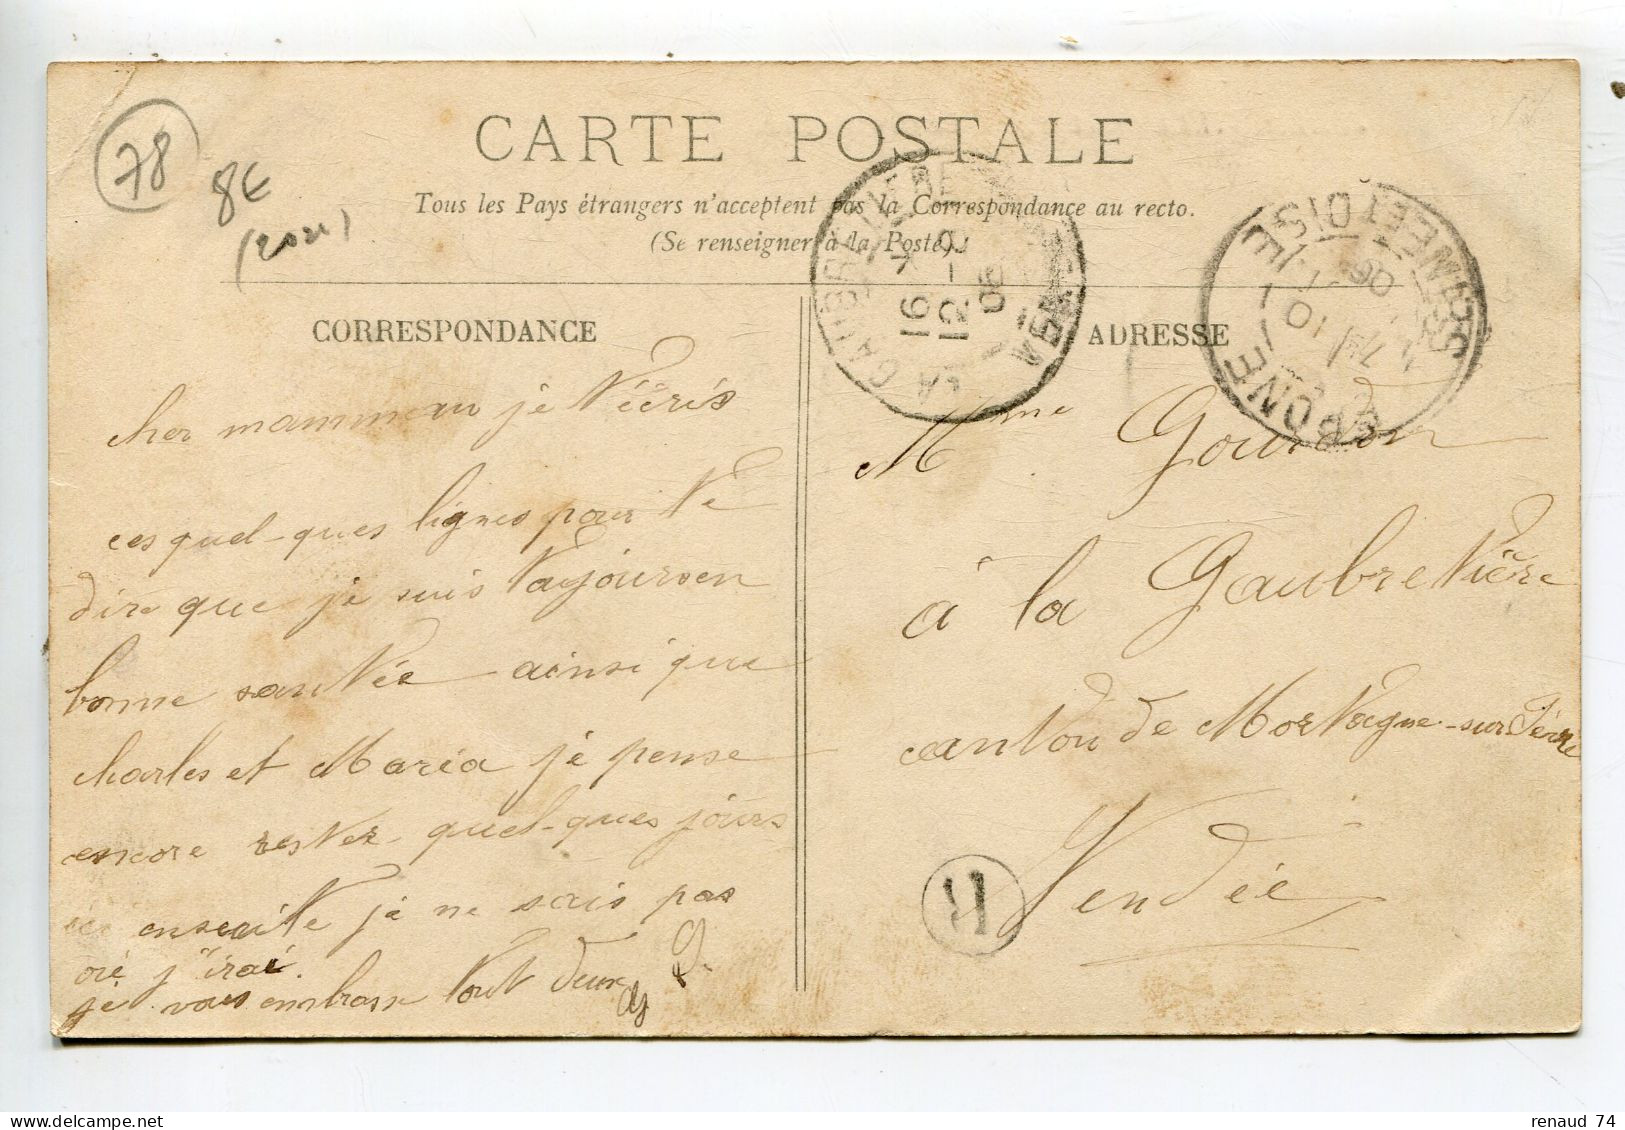 78
8€
CARTE POSTALE
Tous les Pays étrangers n'acceptent pas la Correspondance au recto.
(Se renseigner à la Poste).
CORRESPONDANCE
cher mamman je tééris
ces quel-ques lignes pour te
dire que je suis taujoursen
bonne santée ainsi que
charles et Maria je pense
encore rester quel-ques jours
ici ensuite je ne sais pas
où j'irai.
je vous embrasse tout deux
ADRESSE
Mme Gourdon
à la Gaubretière
canton de Mortagne-sur Sèvre
Vendée
LA GAUBRETIÈRE
16
12 - 9
06
VENDÉE
EPONE
SEINE ET OISE
10
06
H
renaud 74